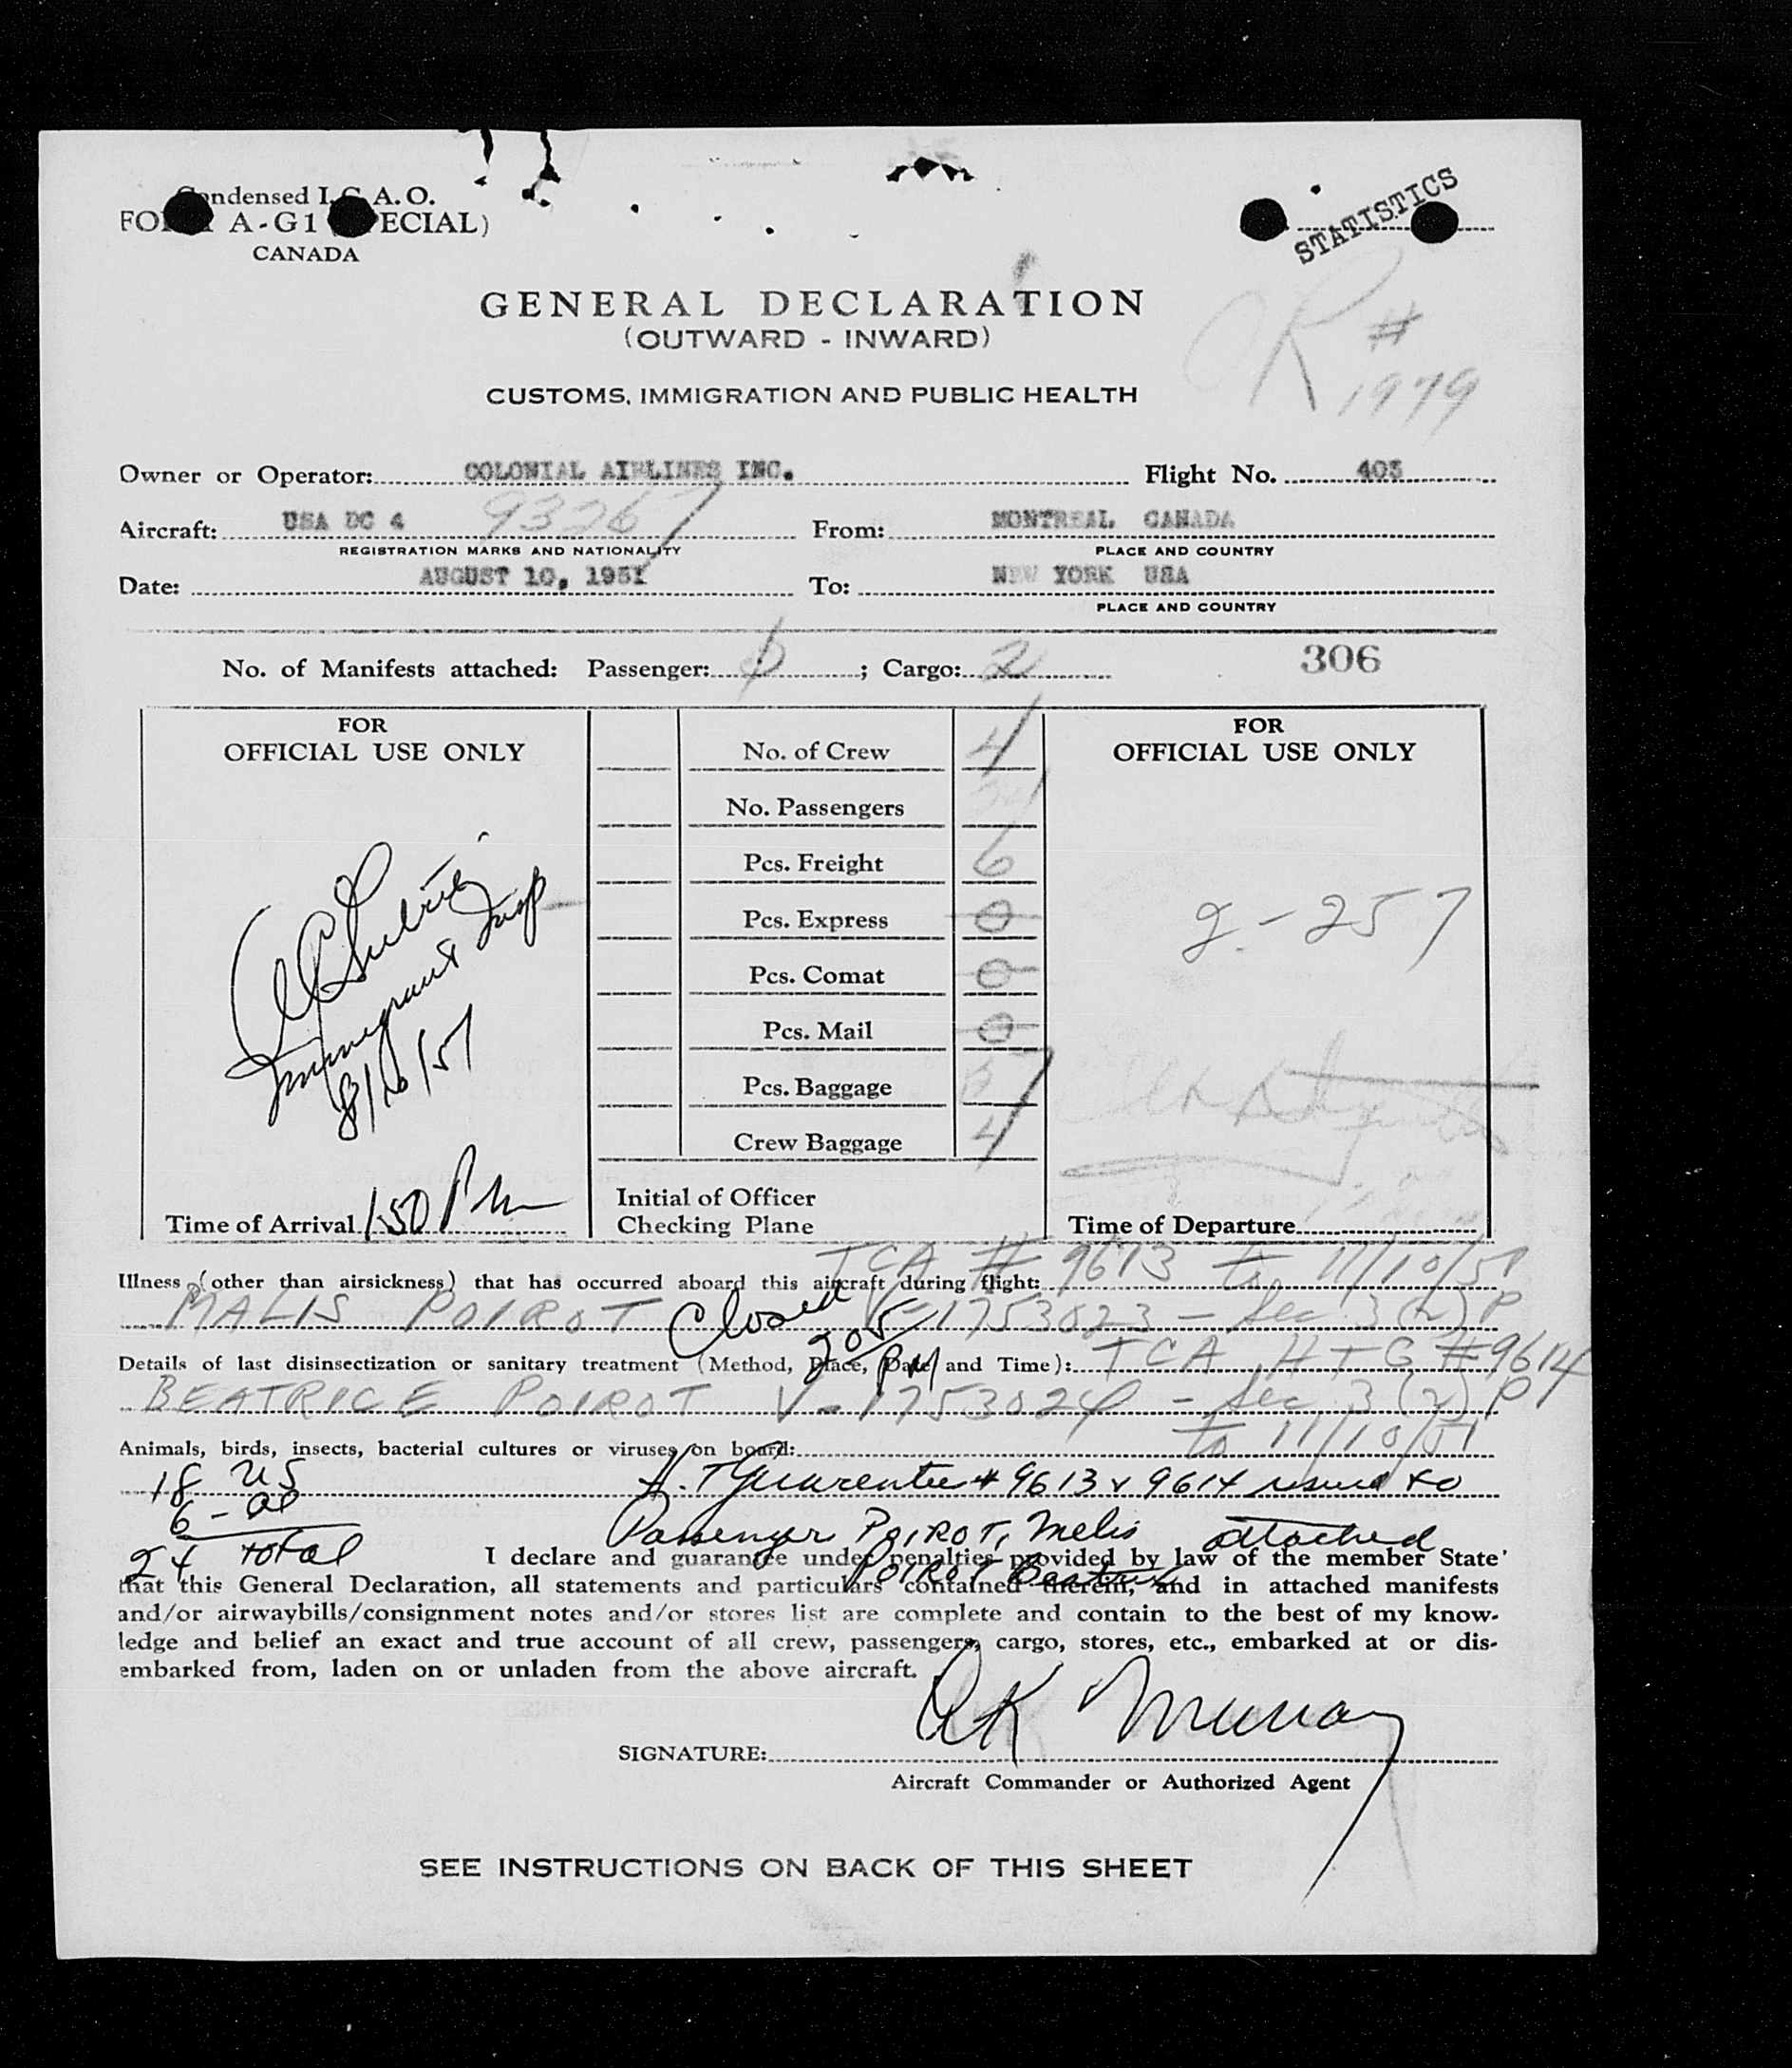 Condensed I.C.A.O.
FORM A-G1 (SPECIAL)
CANADA
STATISTICS
GENERAL DECLARATION
(OUTWARD - INWARD)
CUSTOMS, IMMIGRATION AND PUBLIC HEALTH
OK # 1979
Owner or Operator: COLONIAL AIRLINES INC. Flight No. 403
Aircraft: USA DC 4 93267 From: MONTREAL CANADA
REGISTRATION MARKS AND NATIONALITY PLACE AND COUNTRY
Date: AUGUST 10, 1951 To: NEW YORK USA
PLACE AND COUNTRY
No. of Manifests attached: Passenger: ; Cargo: 2 306
FOR
OFFICIAL USE ONLY
Immigrant Insp
8/10/51
Time of Arrival 1:50 Pm
No. of Crew 4
No. Passengers
Pcs. Freight 6
Pcs. Express 0
Pcs. Comat 0
Pcs. Mail 0
Pcs. Baggage
Crew Baggage 4
Initial of Officer
Checking Plane
FOR
OFFICIAL USE ONLY
2 - 257
Time of Departure
TCA # 9613 to 11/10/51
Illness (other than airsickness) that has occurred aboard this aircraft during flight:
MALIS POIROT V-1753023 - Sec 3(2) P
Closed 205 PM
Details of last disinsectization or sanitary treatment (Method, Place, Date and Time): TCA HTG #9614
BEATRICE POIROT V-1753024 - Sec 3(2) P
to 11/10/51
Animals, birds, insects, bacterial cultures or viruses on board:
18 US
6 - al
24 total
H.T Guarentee # 9613 & 9614 issued to
Passenger POIROT, Melis attached
POIROT Beatrice
I declare and guarantee under penalties provided by law of the member State
that this General Declaration, all statements and particulars contained therein, and in attached manifests
and/or airwaybills/consignment notes and/or stores list are complete and contain to the best of my know-
ledge and belief an exact and true account of all crew, passengers, cargo, stores, etc., embarked at or dis-
embarked from, laden on or unladen from the above aircraft.
SIGNATURE: AK Murray
Aircraft Commander or Authorized Agent
SEE INSTRUCTIONS ON BACK OF THIS SHEET